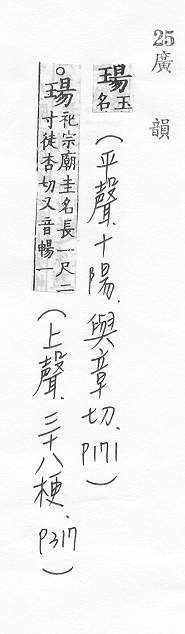 25 廣韻
瑒 玉名 (平聲.十陽.與章切.P171)
○瑒 祀宗廟圭名長一尺二寸徒杏切又音暢一 (上聲.三十八梗.P317)